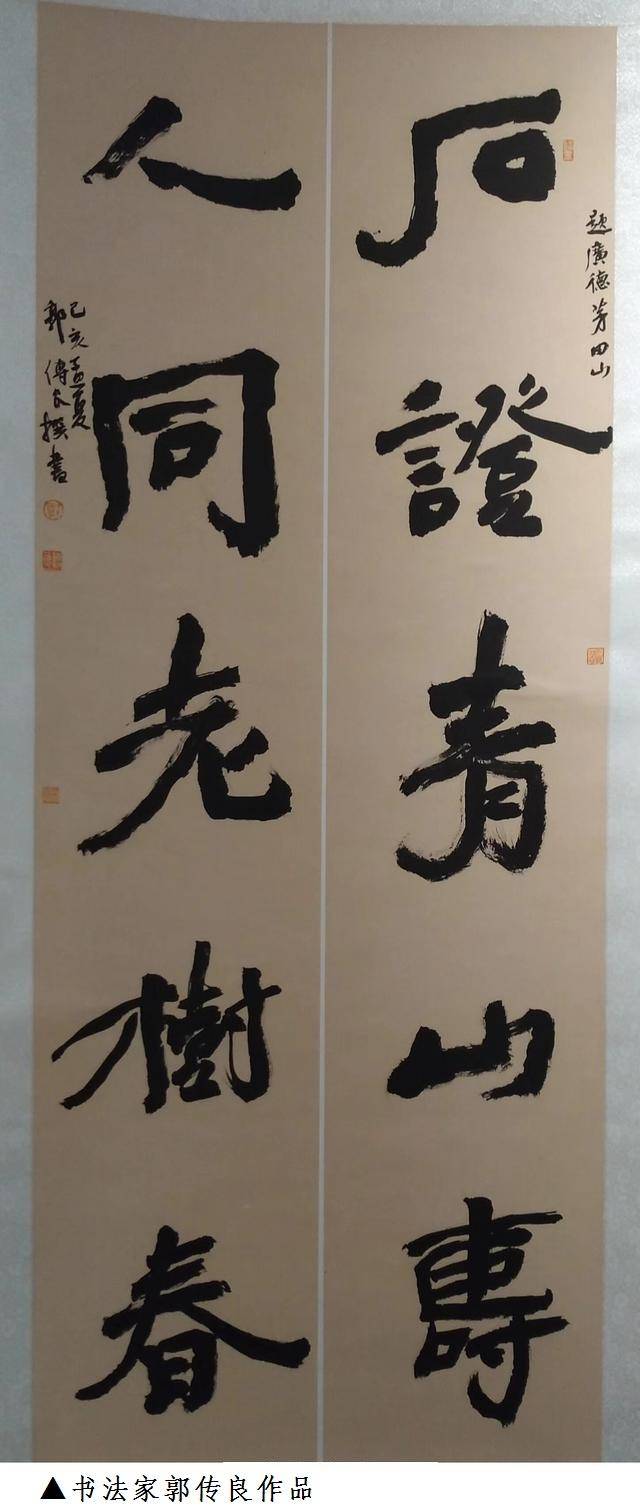 題廣德茅田山
石證青山壽
人同老樹春
己亥孟夏
郭傳良撰書
▲书法家郭传良作品